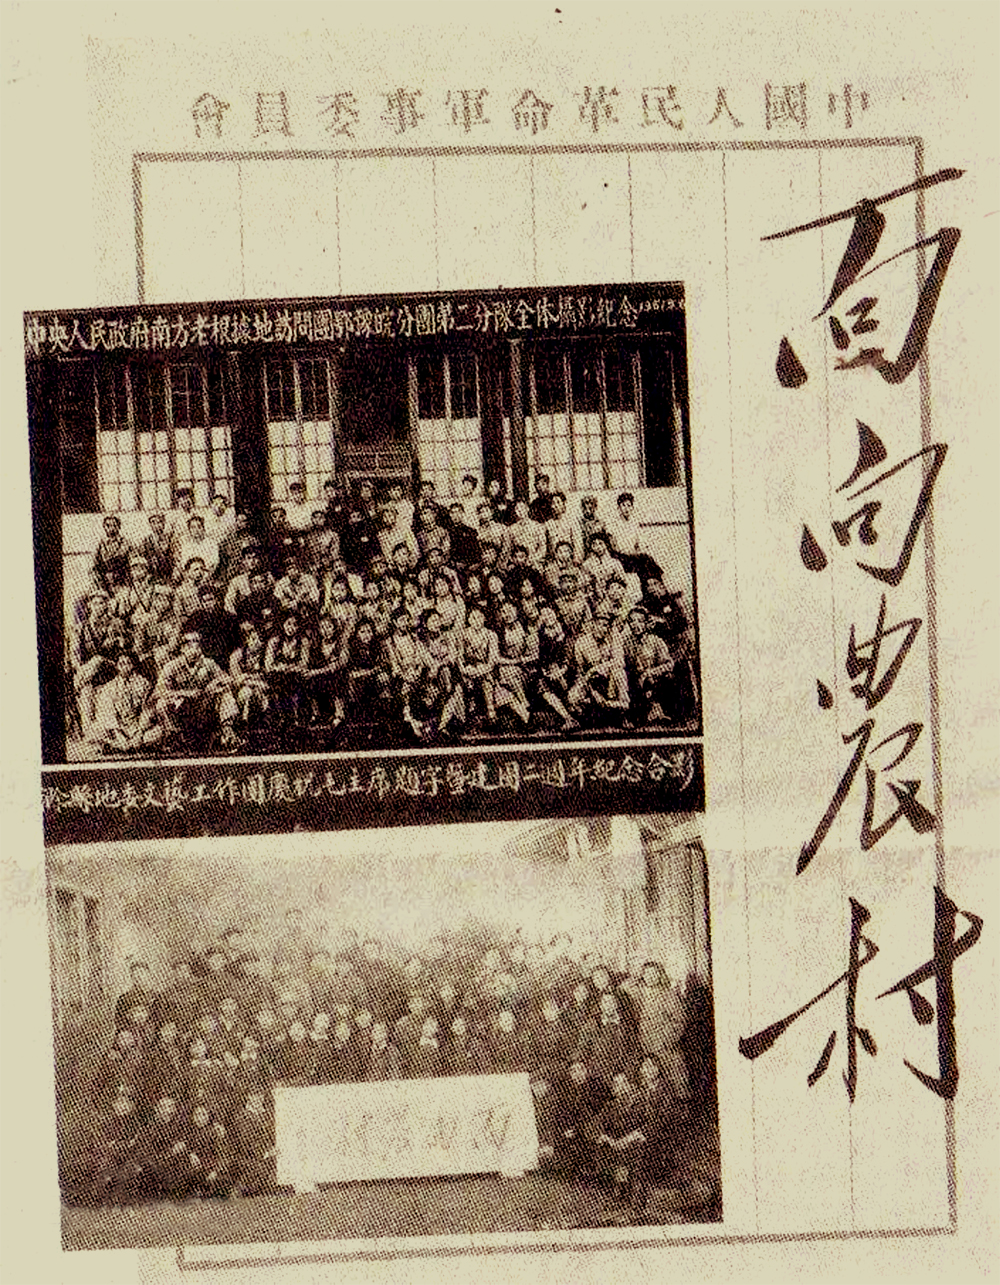 中國人民革命軍事委員會
面向農村
中央人民政府南方老根據地訪問團鄂豫皖分團第二分隊全体攝影紀念
地委文藝工作團慶祝毛主席題字暨建國二週年紀念合影